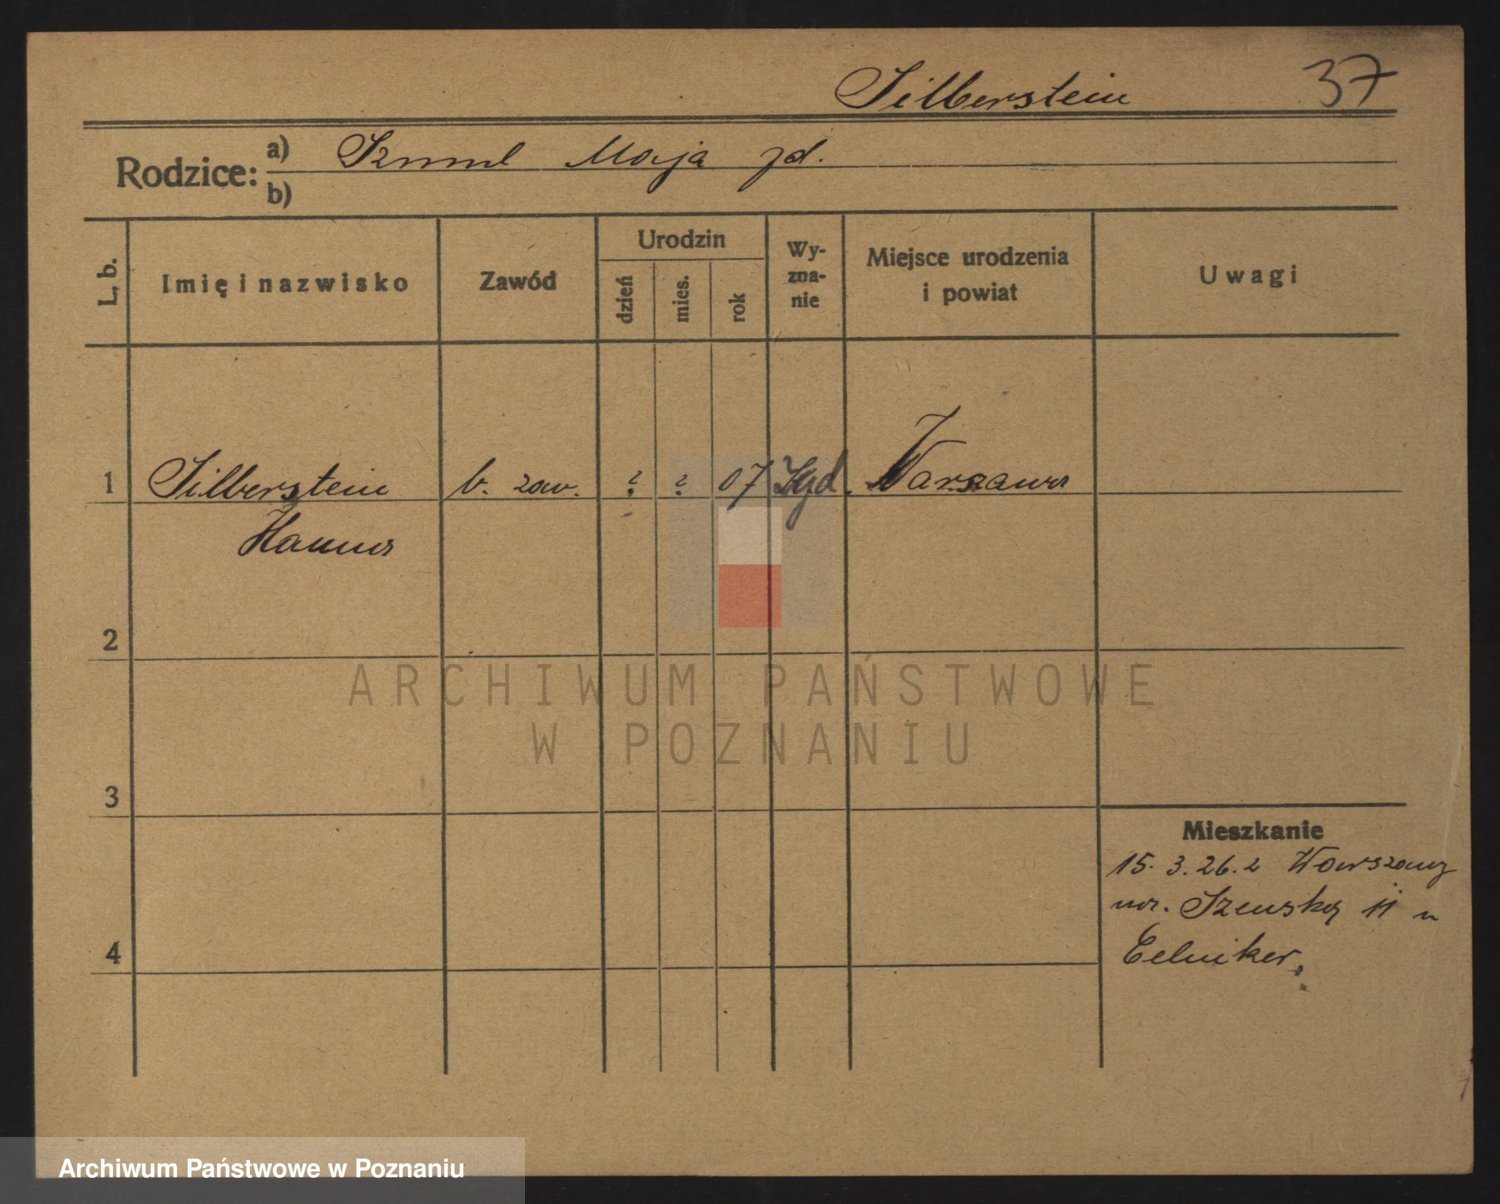 Silberstein 37
Rodzice: a) Szmul Maja żd.
b)
L. b. Imię i nazwisko Zawód Urodzin dzień mies. rok Wy-zna-nie Miejsce urodzenia i powiat Uwagi
1 Silberstein b. zaw. ? ? 07 Warszawa
Hanna
2
3
4
Mieszkanie
15. 3. 26. z Warszawy
11 u
Celniker.
ARCHIWUM PAŃSTWOWE
W POZNANIU
Archiwum Państwowe w Poznaniu